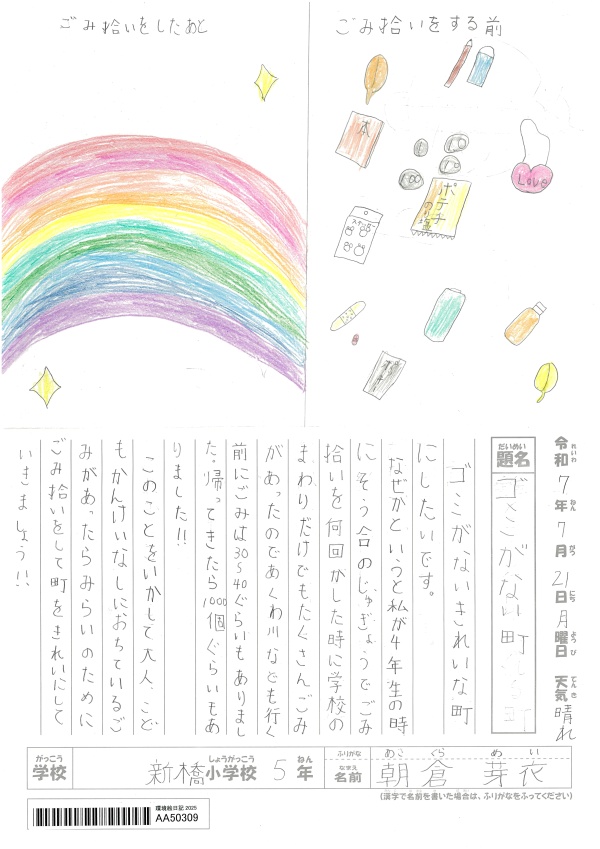 ごみ拾いをしたあと
ごみ拾いをする前
本
1
10
10
100
Love
ポテチ
のり塩
令和7年7月21日月曜日 天気 晴れ
れいわ ねん がつ にち ようび てんき
だいめい
題名
ゴミがない町
ゴミがないきれいな町
にしたいです。
なぜかというと私が4年生の時
にそう合のじゅぎょうでごみ
拾いを何回かした時に学校の
まわりだけでもたくさんごみ
があったのであくわ川なども行く
前にごみは30~40ぐらいもありまし
た。帰ってきたら1000個ぐらいもあ
りました!!
このことをいかして大人、こど
もかんけいなしにおちているご
みがあったらみらいのために
ごみ拾いをして町をきれいにして
いきましょう!!
がっこう しょうがっこう ねん
学校 新橋小学校 5年
ふりがな あさくら めい
なまえ
名前 朝倉 芽衣
(漢字で名前を書いた場合は、ふりがなをふってください)
環境絵日記2025
AA50309